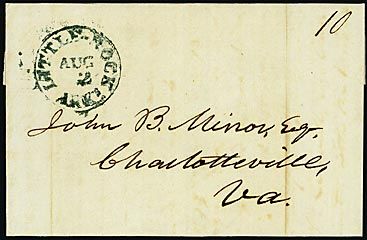 10
LITTLE-ROCK ARK
AUG
2
John B. Minor, Esq.
Charlotteville,
Va.